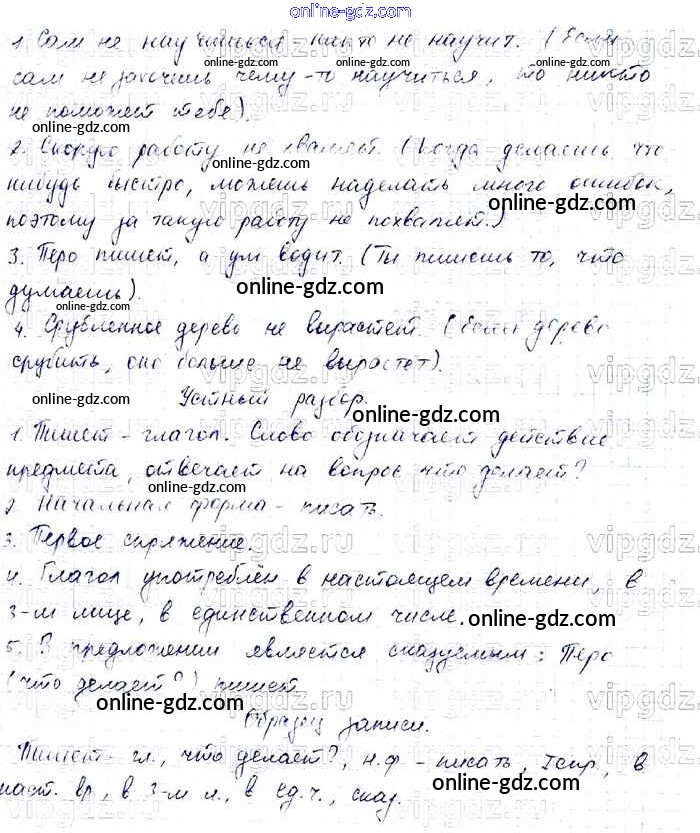 online-gdz.com
1. Сам не научишься никто не научит. (Если
сам не захочешь чему-то научиться, то никто
не поможет тебе).
online-gdz.com
2. Скорую работу не хвалят. (Когда делаешь что
нибудь быстро, можешь наделать много ошибок,
поэтому за такую работу не похвалят.)
3. Перо пишет, а ум водит. (Ты пишешь то, что
думаешь).
online-gdz.com
4. Срубленное дерево не вырастет. (Если дерево
срубить, оно больше не вырастет).
Устный разбор.
online-gdz.com
1. Пишет - глагол. Слово обозначает действие
предмета, отвечает на вопрос что делает?
online-gdz.com
2. Начальная форма - писать.
3. Первое спряжение.
vipgdz.ru
4. Глагол употреблён в настоящем времени, в
3-м лице, в единственном числе.
online-gdz.com
5. В предложении является сказуемым: Перо
(что делает?) пишет
online-gdz.com
Образец записи.
Пишет - гл., что делает?, н.ф - писать, I спр., в
наст. вр., в 3-м л., в ед.ч., сказ.
online-gdz.com